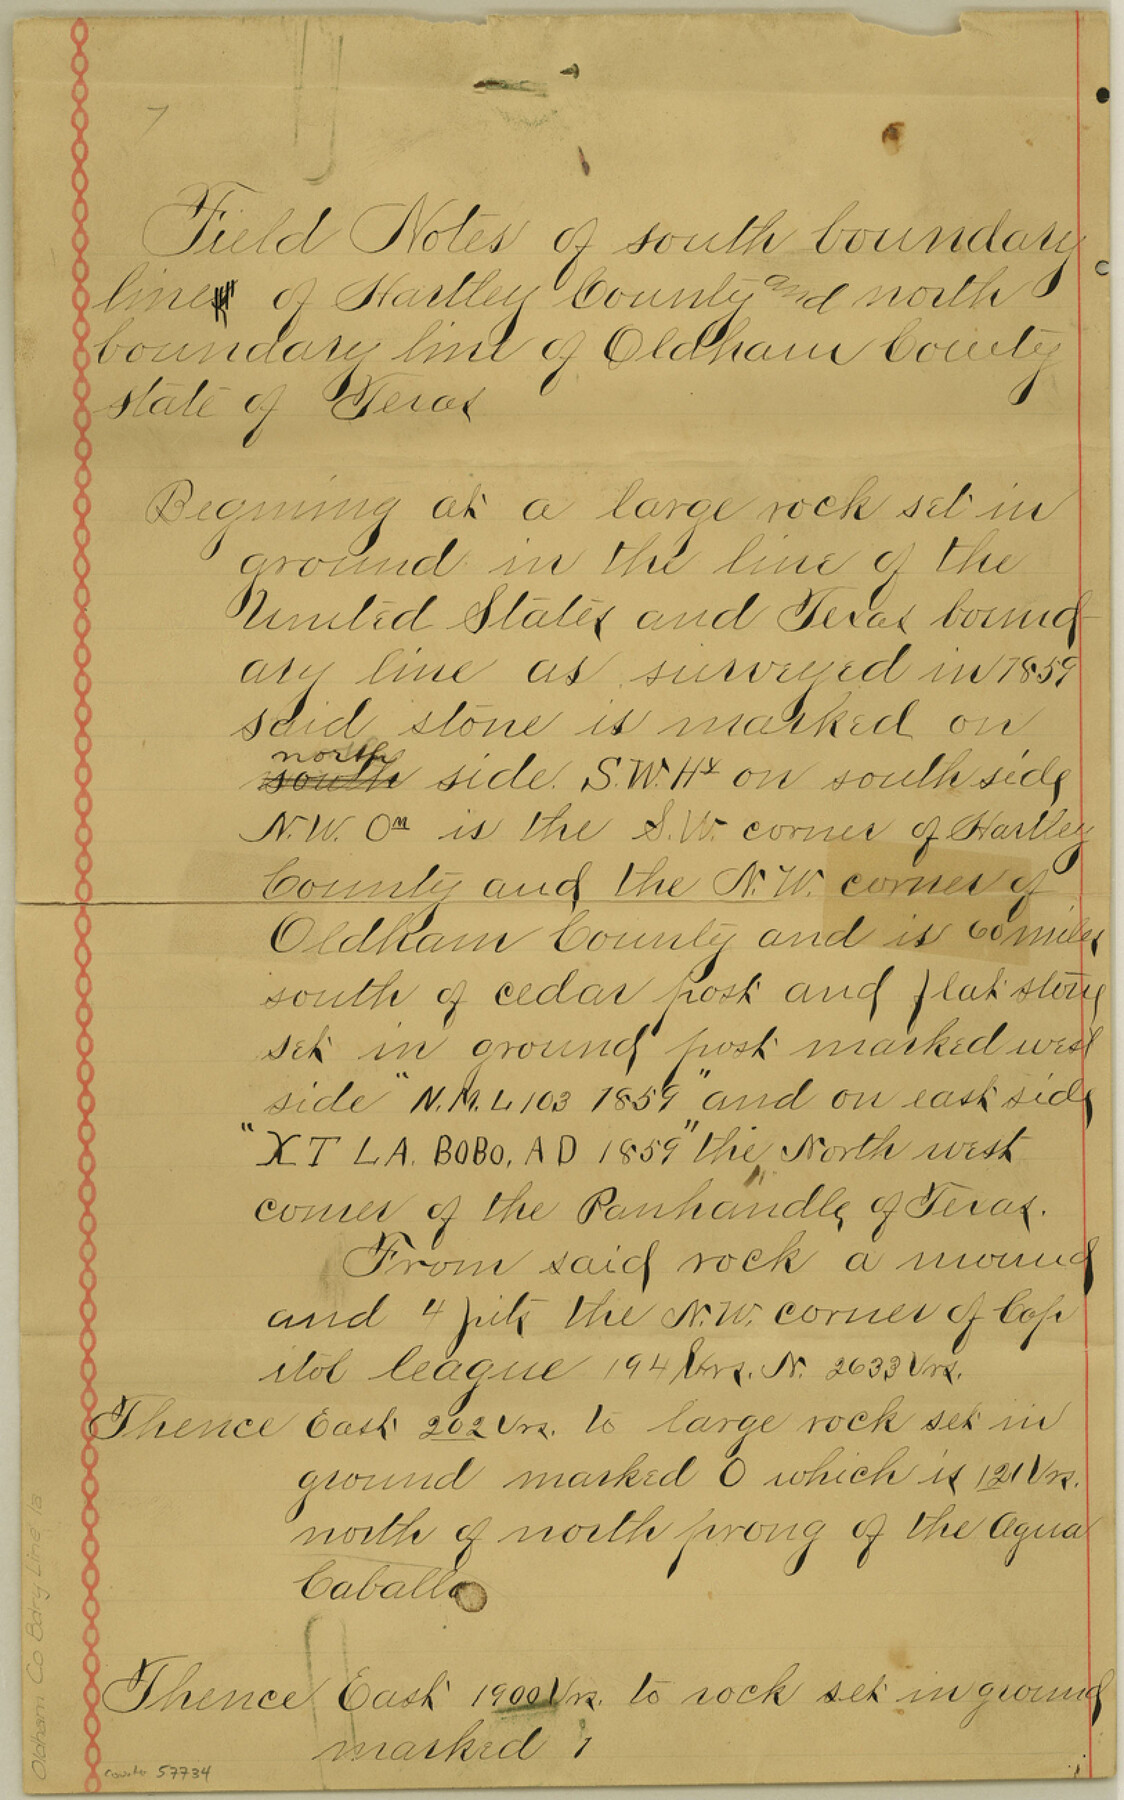 7
Field Notes of south boundary
line of Hartley County and north
boundary line of Oldham County
state of Texas
Begining at a large rock set in
ground in the line of the
United States and Texas bound-
ary line as surveyed in 1859
said stone is marked on
north
south side. S.W. Hy on south side
N.W. Om is the S.W. corner of Hartley
County and the N.W. corner of
Oldham County and is 60 miles
south of cedar post and flat stone
set in ground post marked west
side "N.M. L 103 1859" and on east side
"XT LA. BOBO, AD 1859" the North west
corner of the Panhandle of Texas.
From said rock a mound
and 4 pits the N.W. corner of Cap
itol league 194 Vrs. N. 2633 Vrs.
Thence East 202 Vrs. to large rock set in
ground marked O which is 121 Vrs.
north of north prong of the Agua
Caballo
Thence East 1900 Vrs. to rock set in ground
marked 1
Oldham Co Bdry Line 1a
counter 57734